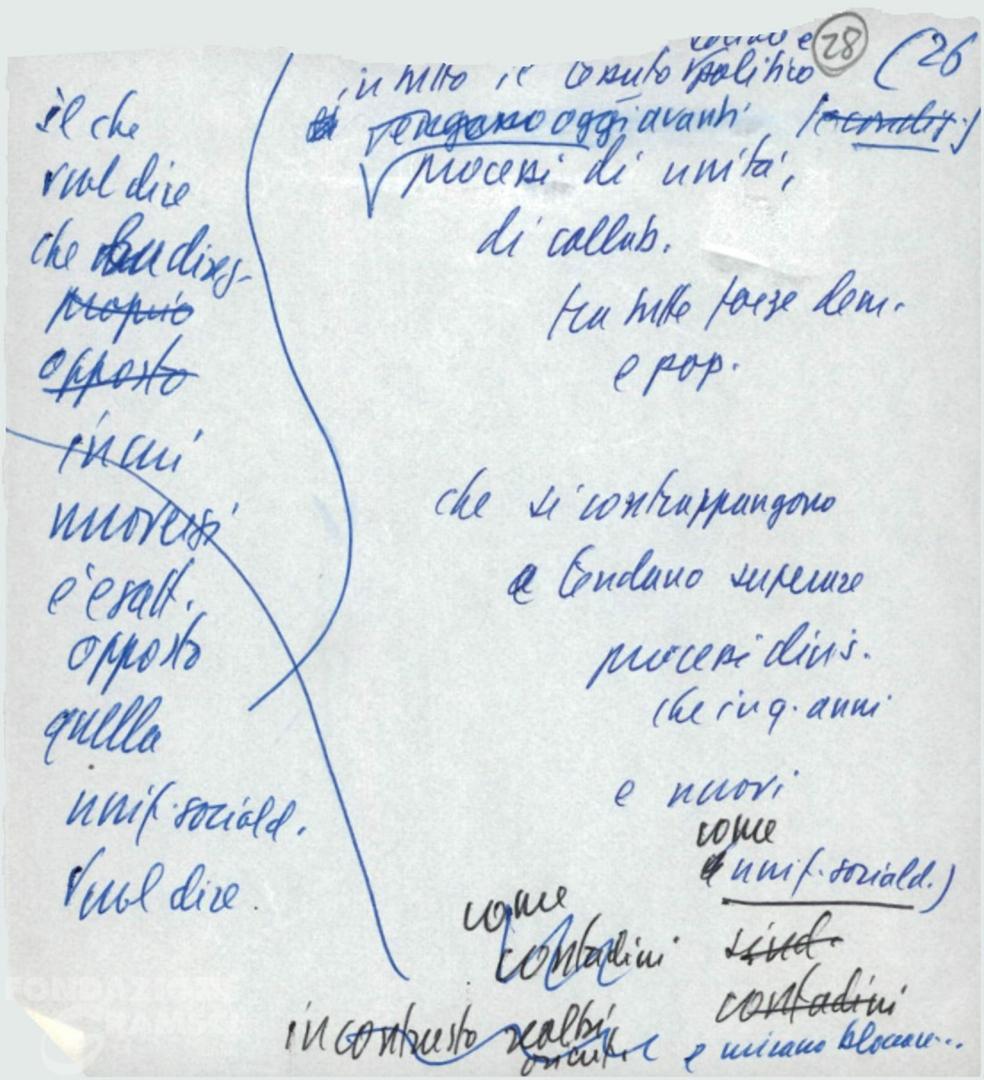 28 (26
sociale e
in tutto il tessuto politico
vengano oggi avanti
processi di unità,
di collab.
tra tutte forze dem.
e pop.
che si contrappongono
e tendano superare
processi divis.
che in q. anni
e nuovi
come
unif. sociald.)
come
contadini sind.
contadini
in contrasto realtà
e mirano bloccare...
il che
vuol dire
che
proprio
opposto
in cui
muoversi
è esatt.
opposto
quella
unif. sociald.
vuol dire.
FONDAZIONE
GRAMSCI